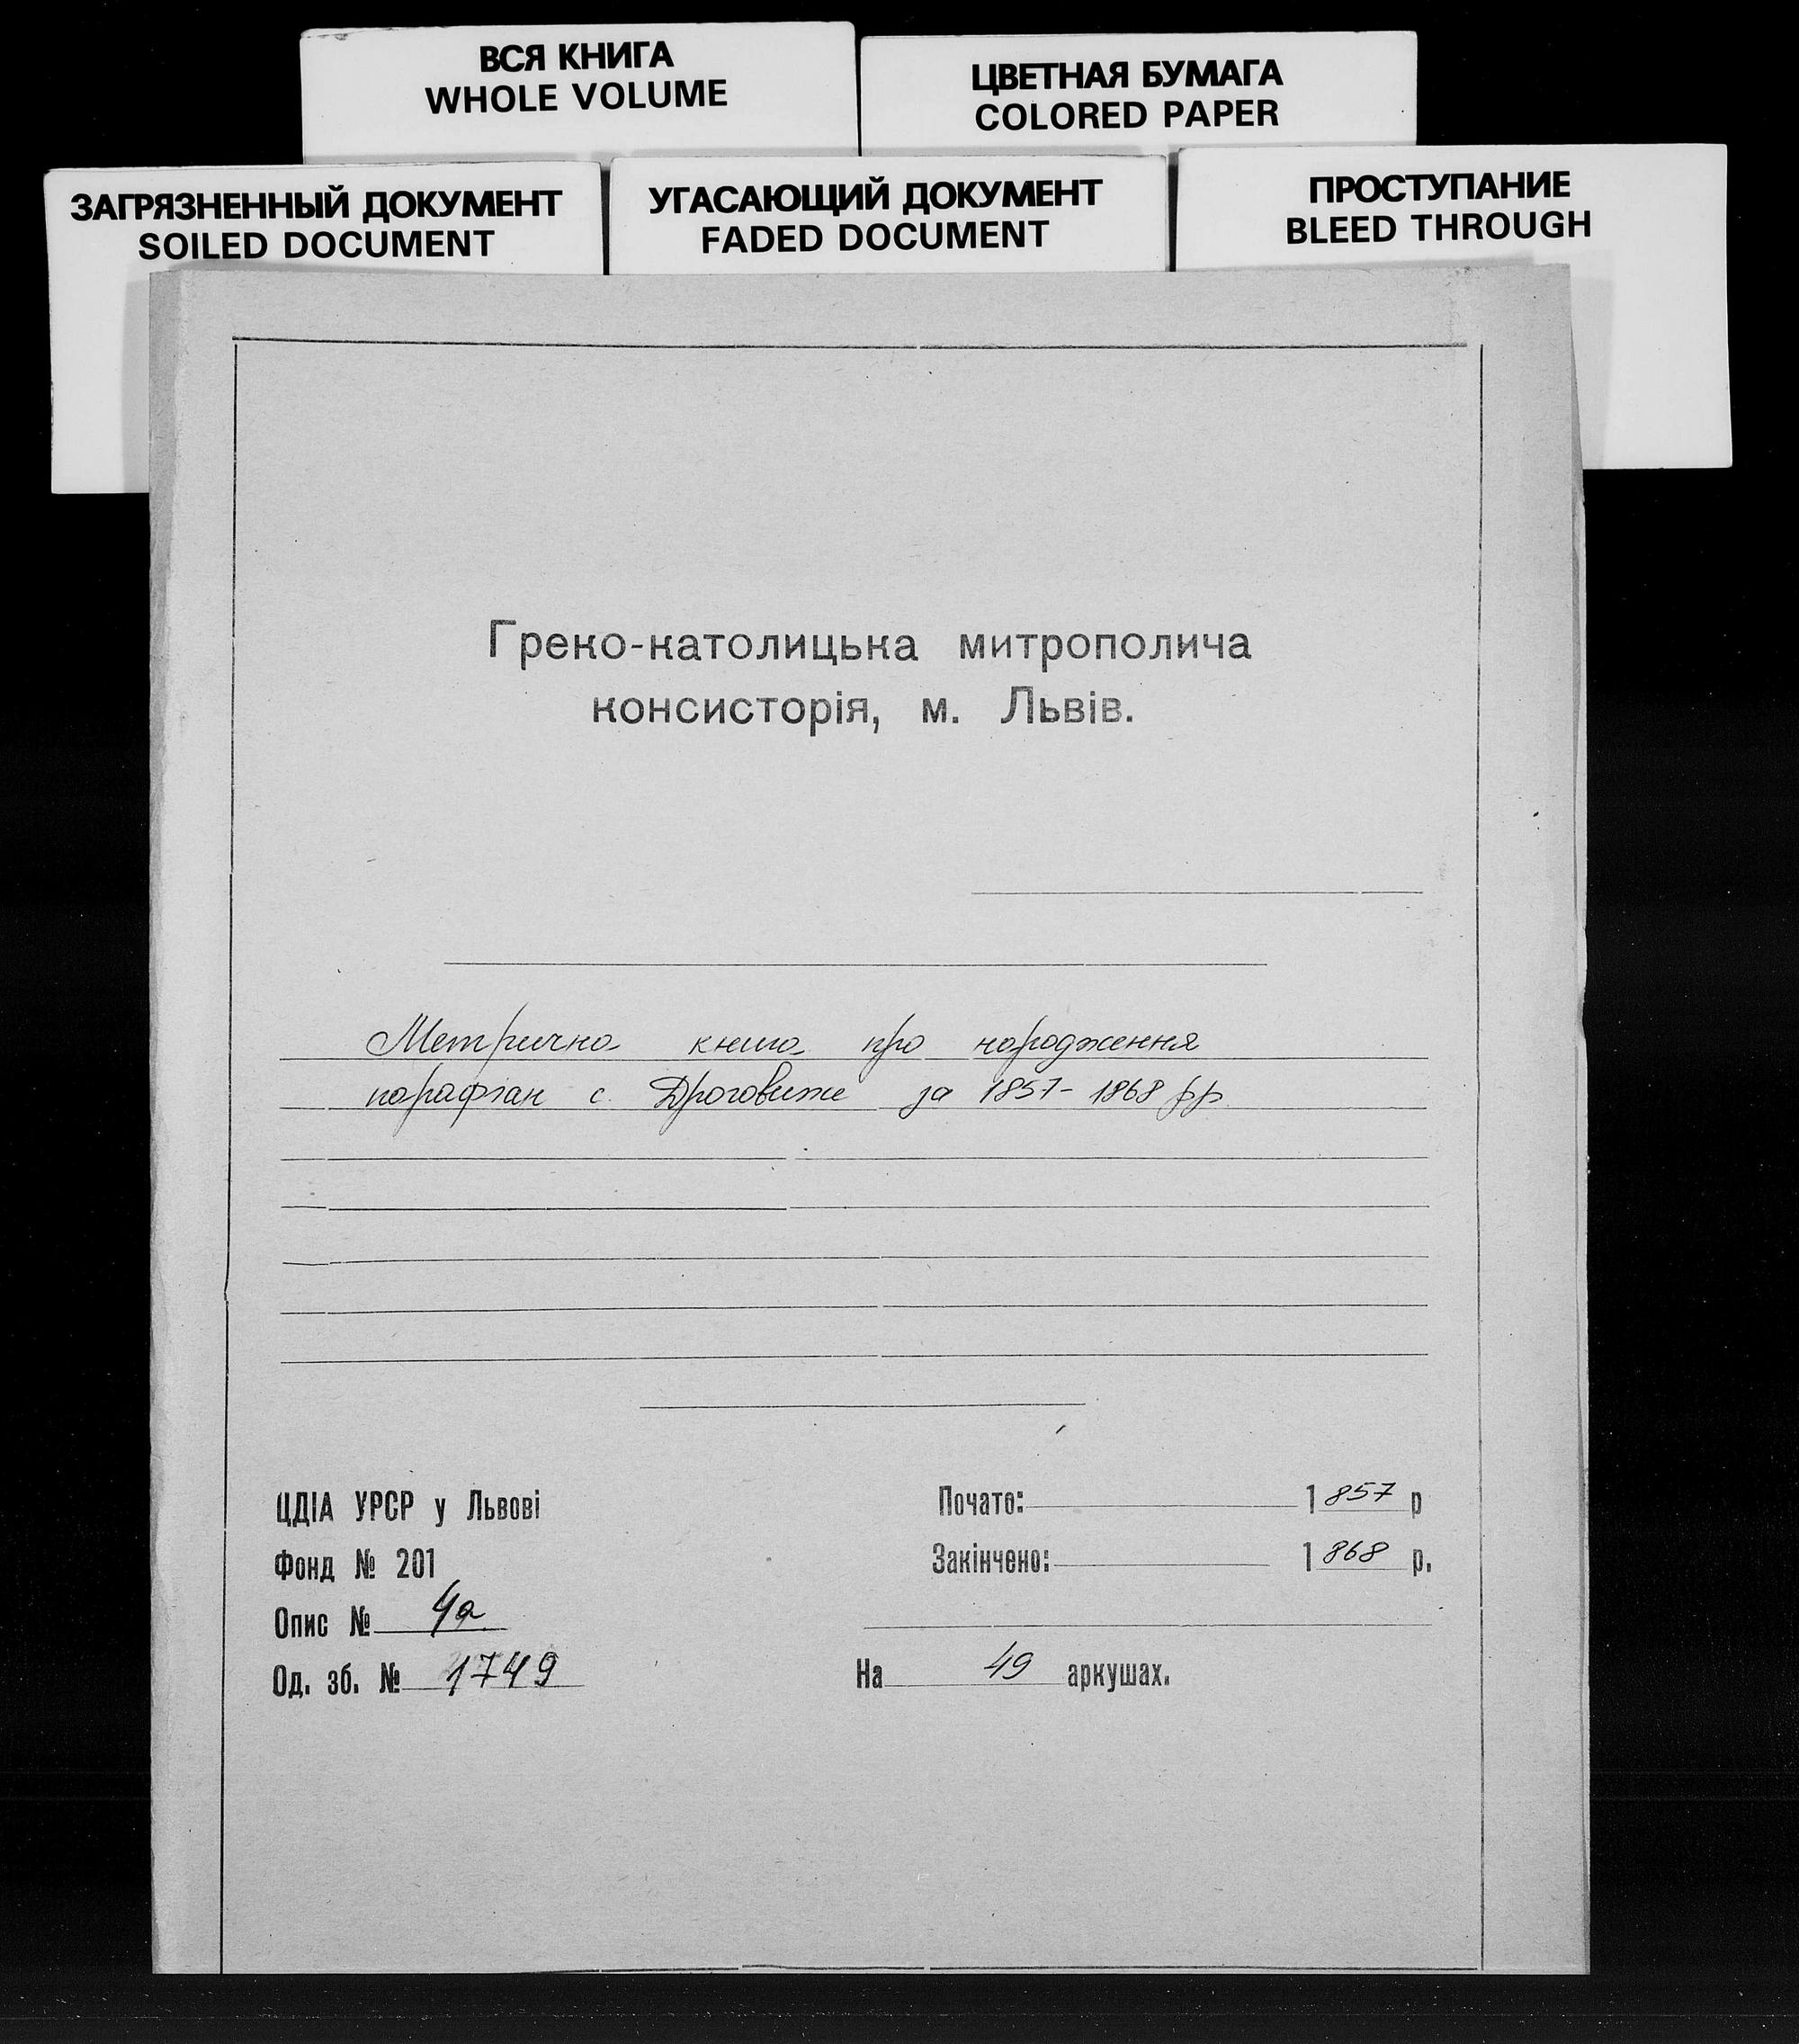 ВСЯ КНИГА
WHOLE VOLUME
ЦВЕТНАЯ БУМАГА
COLORED PAPER
ЗАГРЯЗНЕННЫЙ ДОКУМЕНТ
SOILED DOCUMENT
УГАСАЮЩИЙ ДОКУМЕНТ
FADED DOCUMENT
ПРОСТУПАНИЕ
BLEED THROUGH
Греко-католицька митрополича
консисторія, м. Львів.
Метрична книга про народження
парафіан с. Дроговиже за 1857-1868 рр.
ЦДІА УРСР у Львові
Фонд № 201
Опис № 4а
Од. зб. № 1749
Почато: 1857 р
Закінчено: 1868 р.
На 49 аркушах.